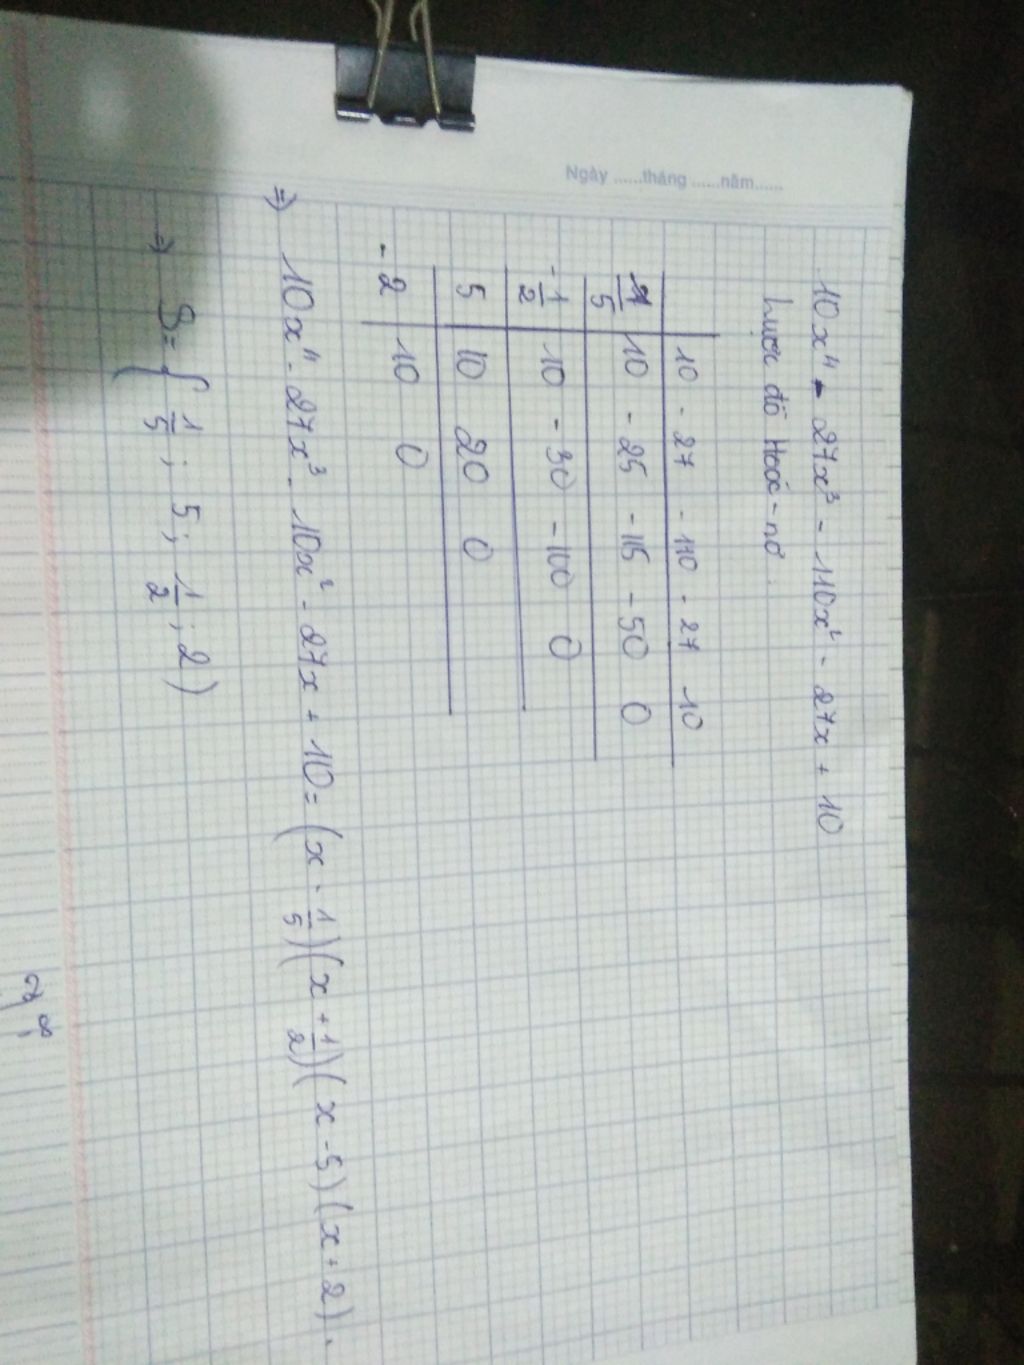 Ngày ......tháng ......năm......
10x⁴ - 27x³ - 110x² - 27x + 10
Lược đồ Hoóc-nơ.
10 -27 -110 -27 10
1/5 10 -25 -115 -50 0
-1/2 10 -30 -100 0
5 10 20 0
-2 10 0
=> 10x⁴ - 27x³ - 10x² - 27x + 10 = (x - 1/5)(x + 1/2)(x - 5)(x + 2).
=> S = { 1/5 ; 5 ; 1/2 ; 2 )